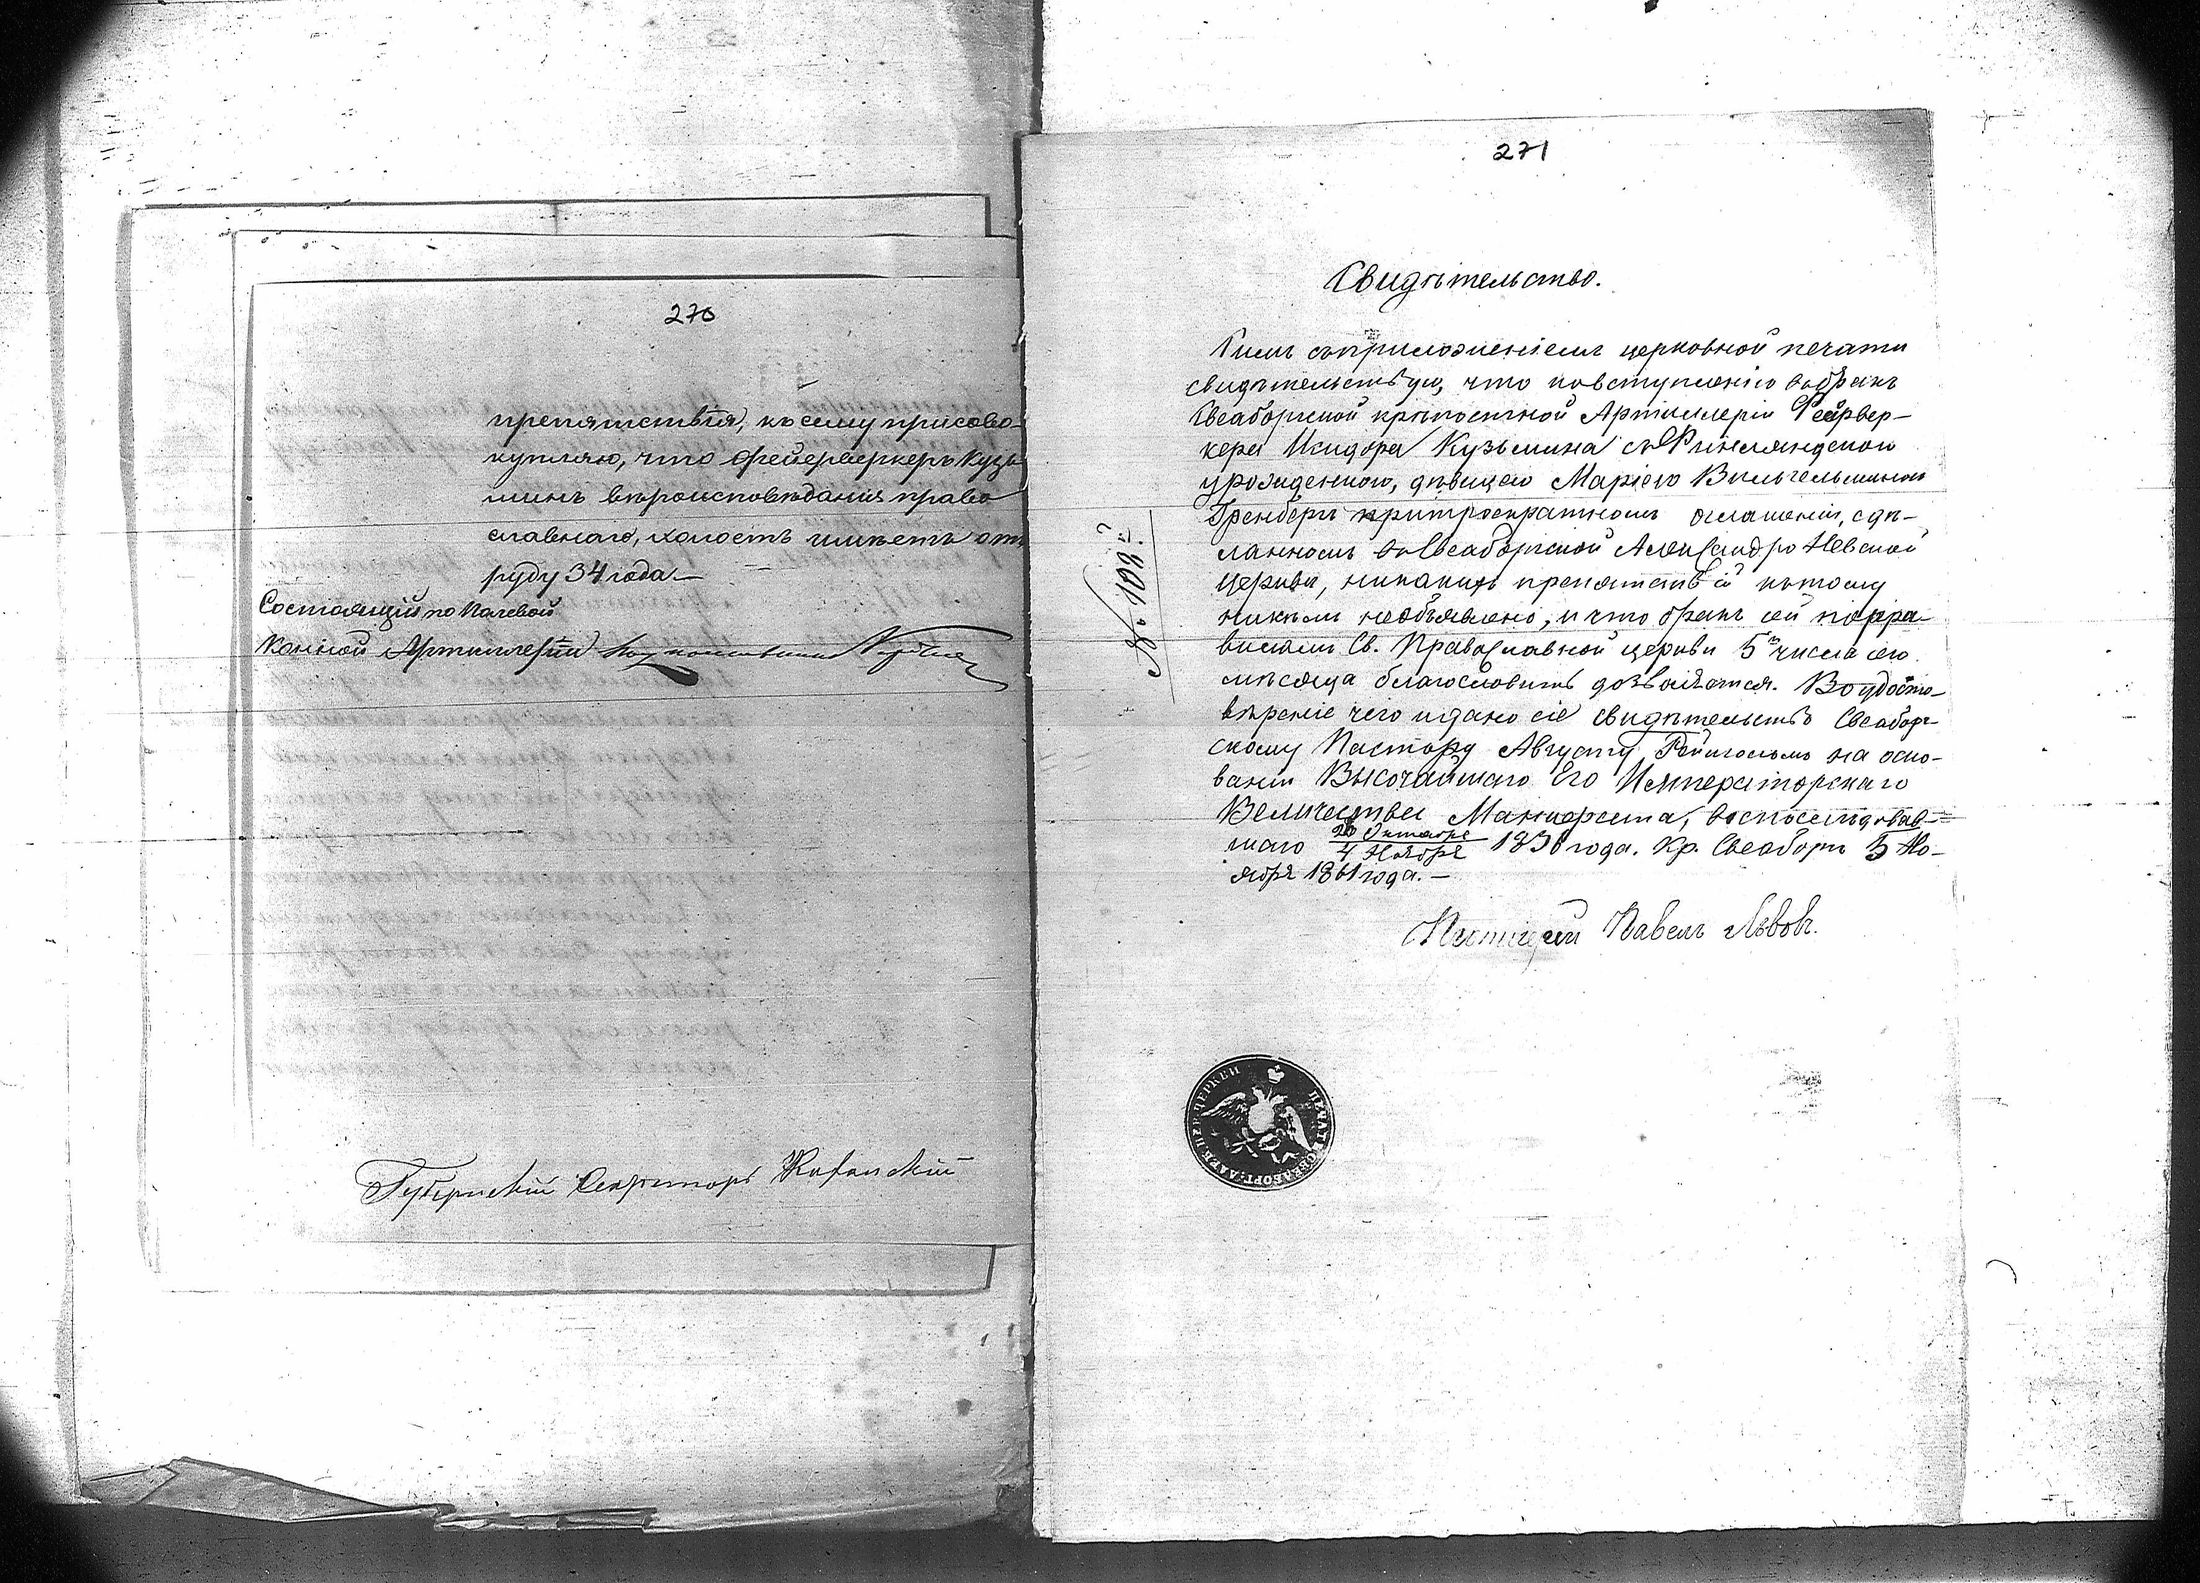 270
препятствія, къ сему присово-
купляю, что фейерверкеръ Кузь
минъ вѣроисповѣданія право
славнаго, холостъ имѣетъ отъ
роду 34 года —
Состоящій по Полевой
Конной Артиллеріи Подполковникъ
Губернскій Секретарь
271
Свидѣтельство.
Симъ съ приложеніемъ церковной печати
свидѣтельствую, что по вступленію въ бракъ
Свеаборгской крѣпостной Артиллеріи Фейрвер-
кера Исидора Кузьмина съ Финляндскою
урожденкою, дѣвицею Маріею Вильгельминою
Гренбергъ при троекратномъ оглашеніи, сдѣ-
ланномъ въ Свеаборгской Александро Невской
Церкви, никакихъ препятствій къ тому
никѣмъ необъявлено, и что бракъ сей по пра-
виламъ Св. Православной церкви 5го числа сего
мѣсяца благословить дозволяется. Въ удосто-
вѣреніе чего и дано сіе свидѣтельство Свеаборг-
скому Пастору Августу на осно-
ваніи Высочайшаго Его Императорскаго
Величества Манифеста, воспослѣдовав-
шаго Октября / 4 Ноября года. Кр. Свеаборгъ 5 Но-
ября 1861 года. —
Павелъ Львовъ.
№ 108
ПЕЧАТЬ СВЕАБОРГ. АЛЕК. НЕВ. ЦЕРКВИ